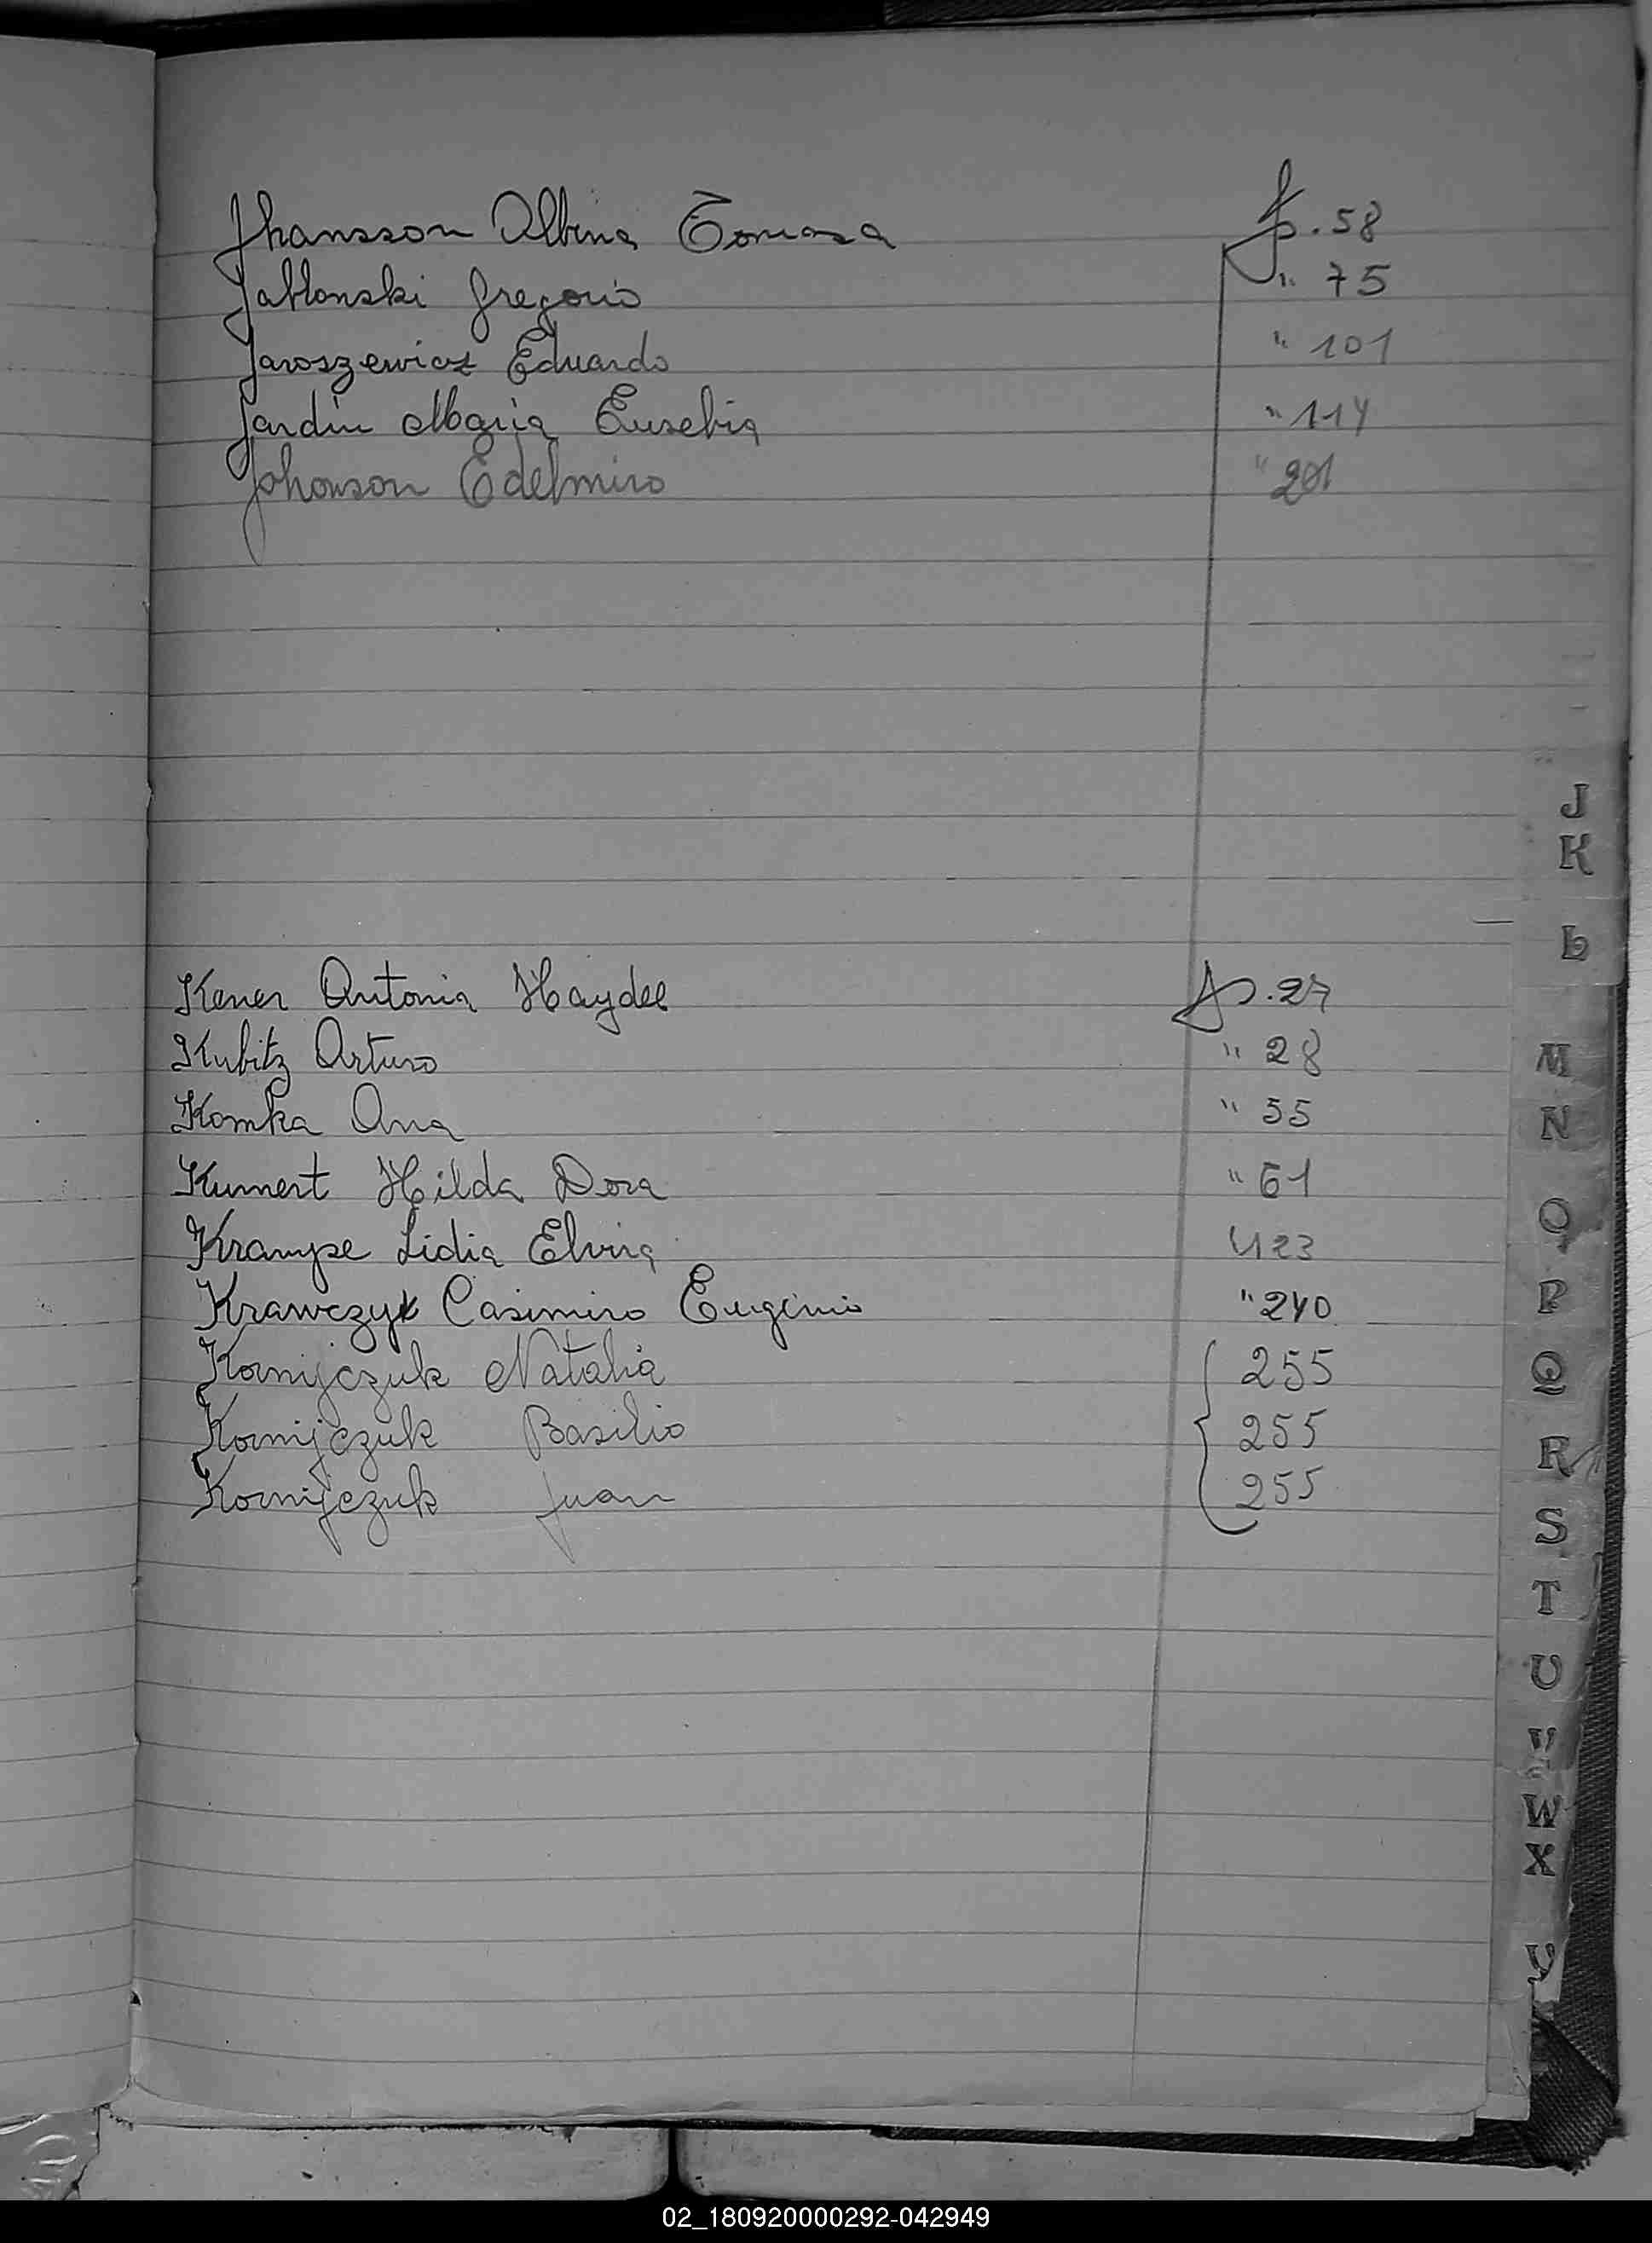 Jhansson Albina Tomasa f. 58
Jablonski Gregorio " 75
Jaroszewicz Eduardo " 101
Jardin Maria Eusebia " 114
Johonson Edelmiro " 201
J
K
L
Kener Antonia Haydee f. 27
Kubitz Arturo " 28
Komka Ana " 55
M
N
Kunert Hilda Dora " 61
O
Krampe Lidia Elvira " 123
Krawczyk Casimiro Eugenio " 240
P
Kornijczuk Natalia 255
Q
Kornijczuk Basilio 255
R
Kornijczuk Juan 255
S
T
U
V
W
X
Y
02_180920000292-042949